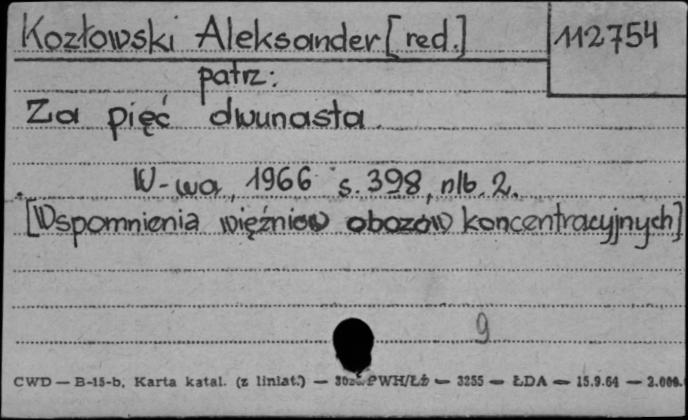 Kozłowski Aleksander [red.] 112754
patrz:
Za pięć dwunasta.
W-wa, 1966 s. 398, nlb. 2.
[Wspomnienia więźniów obozów koncentracyjnych]
9
CWD — B-15-b, Karta katal. (z liniat.) — PWH/Łż — 3255 — ŁDA — 15.9.64 — 2.000.